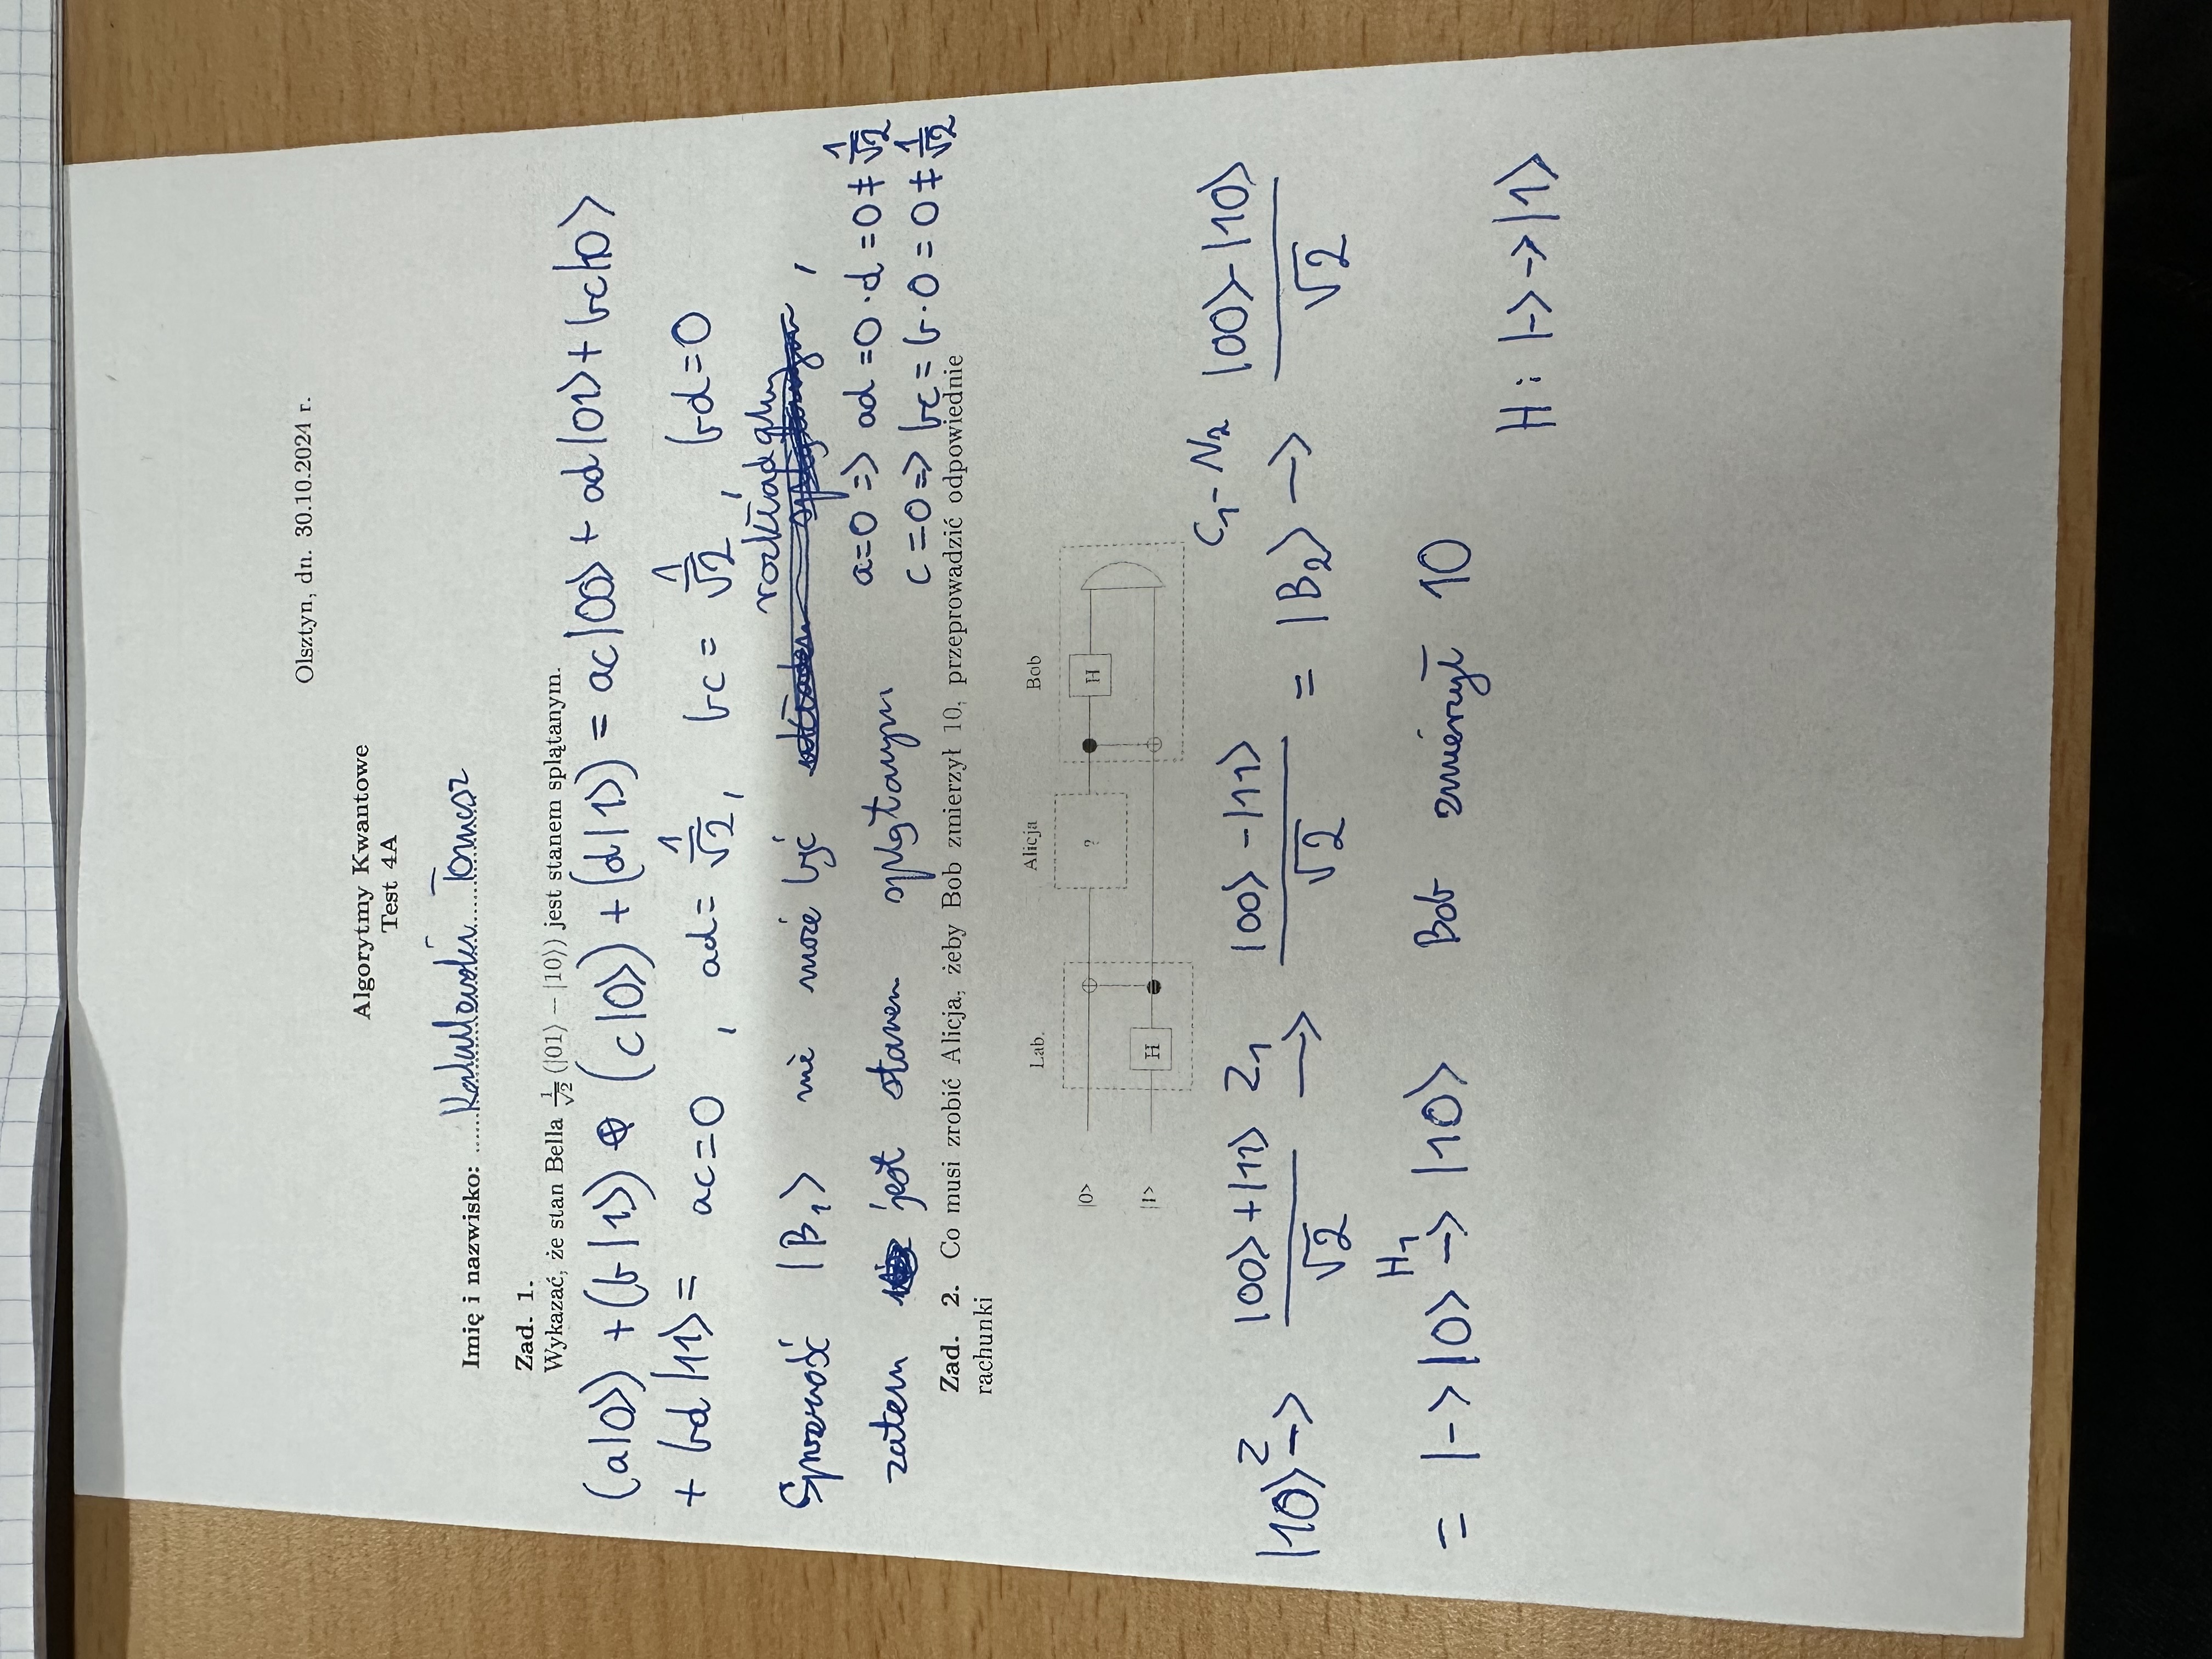 Olsztyn, dn. 30.10.2024 r.
Algorytmy Kwantowe
Test 4A
Imię i nazwisko: Tomasz
Zad. 1.
Wykazać, że stan Bella 1/√2 (|01⟩ − |10⟩) jest stanem splątanym.
(a|0⟩) + (b|1⟩) ⊕ (c|0⟩) + (d|1⟩) = ac|00⟩ + ad|01⟩ + bc|10⟩
+ bd|11⟩ = ac=0, ad= 1/√2, bc= 1/√2, bd=0
rozkładalny
Sprzeność |B₁⟩ nie może być ,
a=0 => ad =0·d =0≠ 1/√2
zatem jest stanem splątanym
c=0=> bc = b·0 = 0≠ 1/√2
Zad. 2. Co musi zrobić Alicja, żeby Bob zmierzył 10, przeprowadzić odpowiednie
rachunki
Lab. Alicja Bob
|0> ? H
|1> H
|10⟩ Z→ (|00⟩+|11⟩)/√2 Z₁→ (|00⟩-|11⟩)/√2 = |B₂⟩ C₁-N₂→ (|00⟩-|10⟩)/√2
= |->|0⟩ H₁→ |10⟩ Bob zmierzył 10
H: |-> → |1⟩